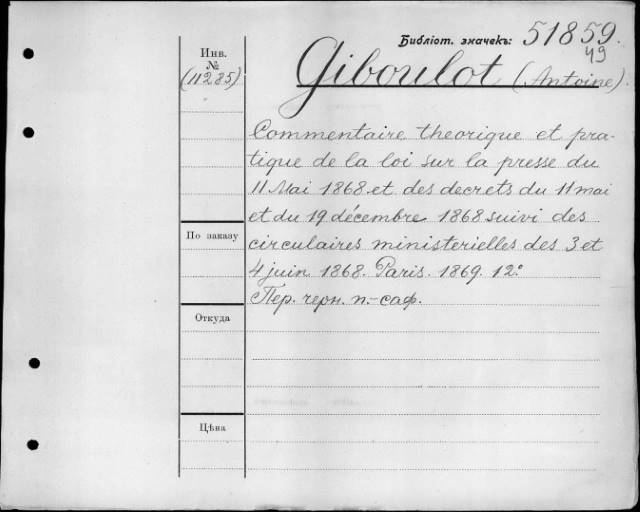 Библiот. значекъ: 51859.
49
Инв.
№
(11285)
Giboulot (Antoine).
Commentaire theorique et pra-
tique de la loi sur la presse du
11 Mai 1868 et des decrets du 11 mai
et du 19 décembre 1868 suivi des
circulaires ministerielles des 3 et
4 juin 1868. Paris. 1869. 12°
Пер. черн. п.-саф.
По заказу
Откуда
Цѣна